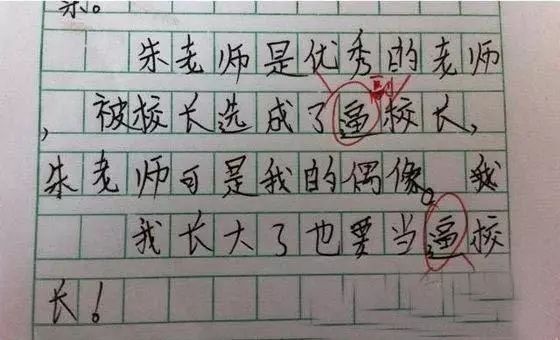 朱。
朱老师是优秀的老师
副
,被校长选成了逼校长,
朱老师可是我的偶像。我
我长大了也要当逼校
长!